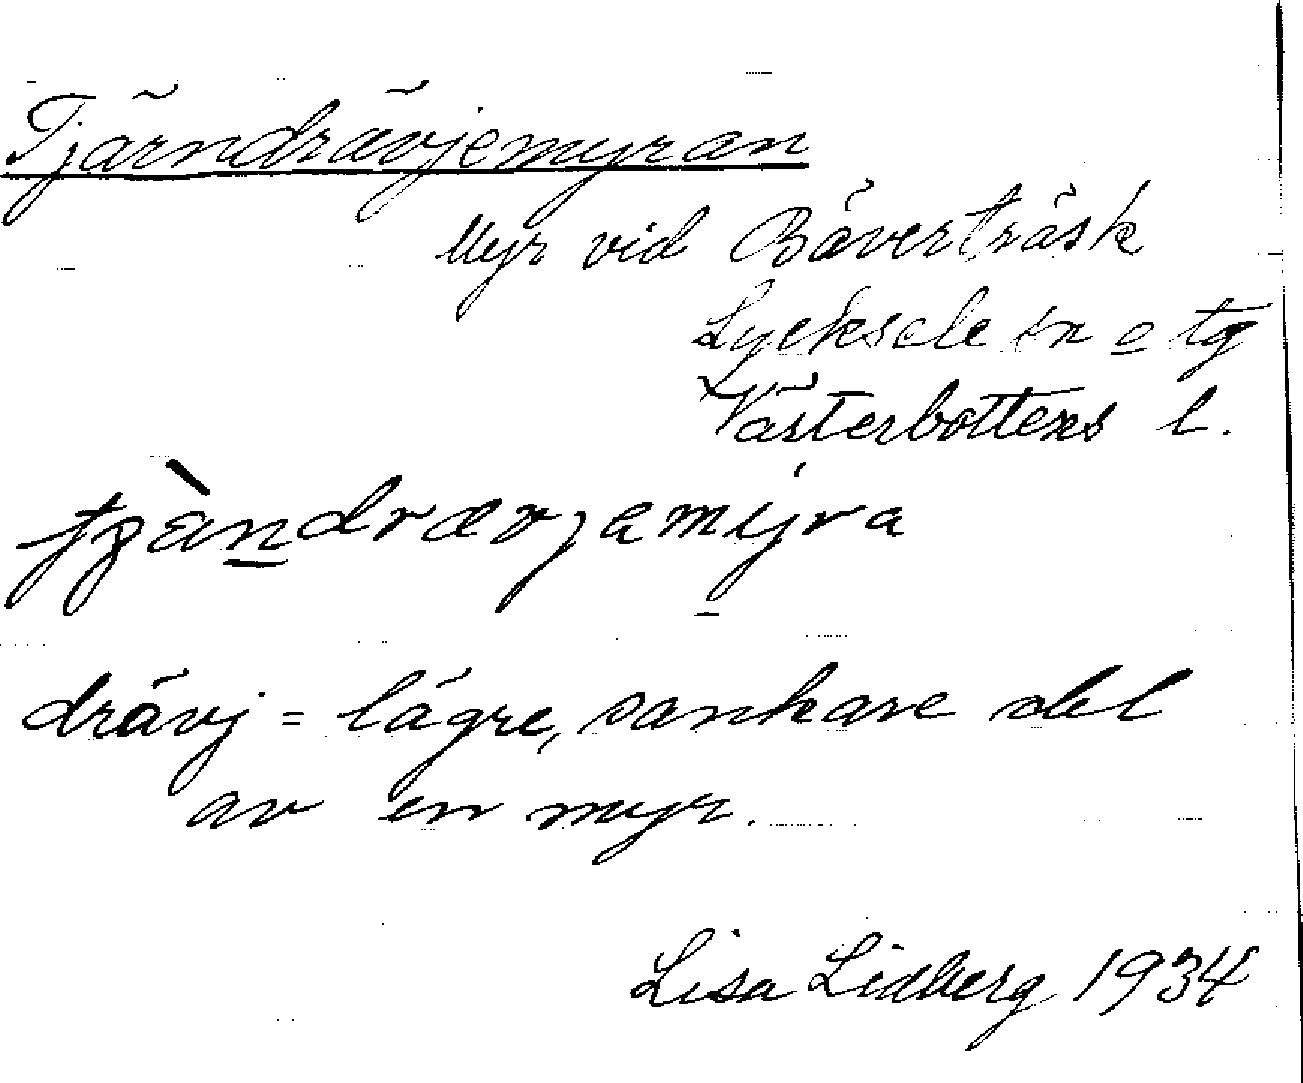 Tjärndrävjemyran
Myr vid Bäverträsk
Lycksele sn o tg
Västerbottens l.
drävj = lägre, sankare del
av en myr.
Lisa Lidberg 1934